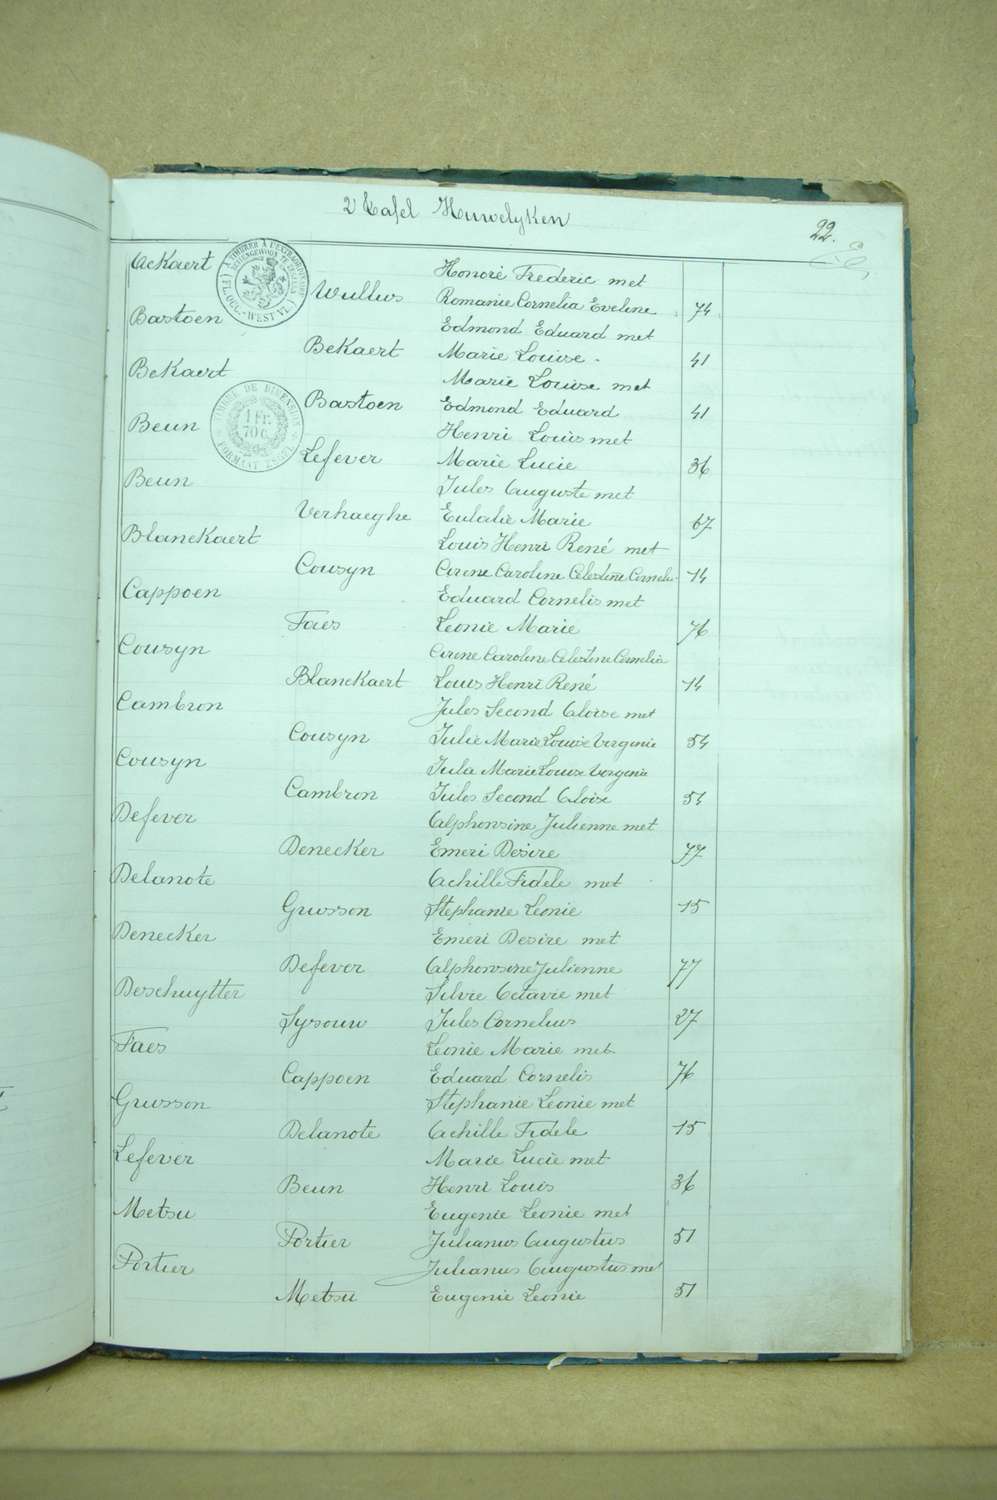 2 Tafel Huwelyken
22.
Ackaert Honoré Frederic met
Wullus Romanie Cornelia Eveline 74
Bastoen Edmond Eduard met
Bekaert Marie Louise 41
Bekaert Marie Louise met
Bastoen Edmond Eduard 41
Beun Henri Louis met
Lefever Marie Lucie 36
Beun Jules Auguste met
Verhaeghe Eulalie Marie 67
Blanckaert Louis Henri René met
Cousyn Cirene Caroline Celestine Cornelia 14
Cappoen Eduard Cornelis met
Faes Leonie Marie 76
Cousyn Cirene Caroline Celestine Cornelia
Blanckaert Louis Henri René 14
Cambron Jules Second Aloise met
Cousyn Julie Marie Louise Virginie 54
Cousyn Julia Marie Louise Virginie
Cambron Jules Second Aloise 54
Defever Alphonsine Julienne met
Denecker Emeri Desire 77
Delanote Achille Fidele met
Grusson Stephanie Leonie 15
Denecker Emeri Desire met
Defever Alphonsine Julienne 77
Deschuytter Silvie Octavie met
Sysouw Jules Cornelius 27
Faes Leonie Marie met
Cappoen Eduard Cornelis 76
Grusson Stephanie Leonie met
Delanote Achille Fidele 15
Lefever Marie Lucie met
Beun Henri Louis 36
Metsu Eugenie Leonie met
Portier Julianus Augustus 51
Portier Julianus Augustus met
Metsu Eugenie Leonie 51